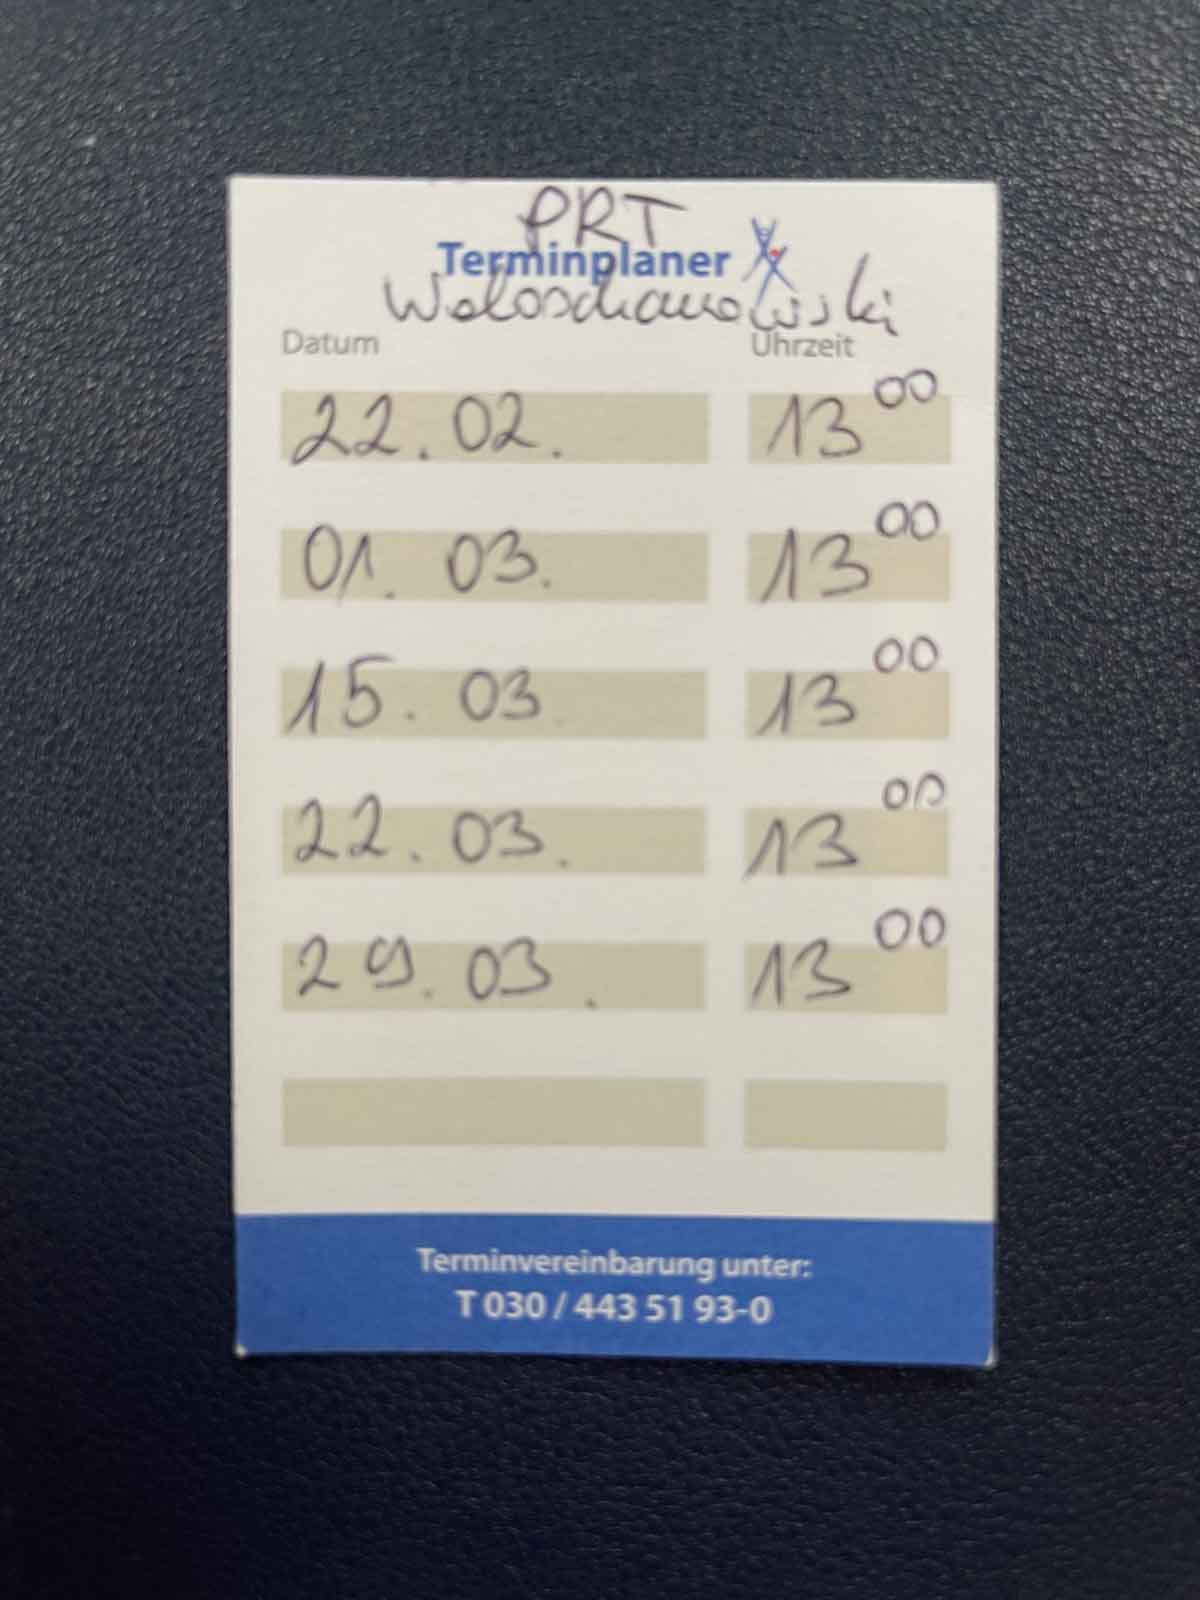 PRT
Terminplaner
Woloschanowski
Datum Uhrzeit
22.02. 13 00
01. 03. 13 00
15. 03 13 00
22. 03. 13 00
29. 03. 13 00
Terminvereinbarung unter:
T 030 / 443 51 93-0